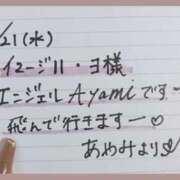 /21(水)
イメージル・ヨ様
エンジェルAyamiです…
飛んで行きますー♡
あやみより